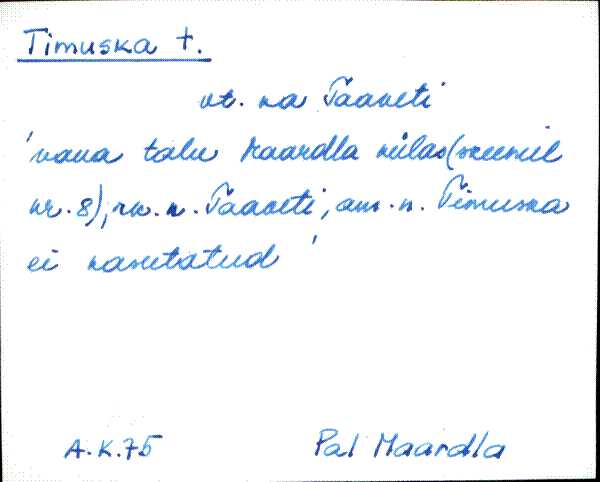 Timuska t.
vt. ka Taaveti
'vana talu Haardla külas (skeemil
nr. 8), rk. n. Taaveti, am. n. Timuska
ei kasutatud'
A.K.75
Pal Haardla